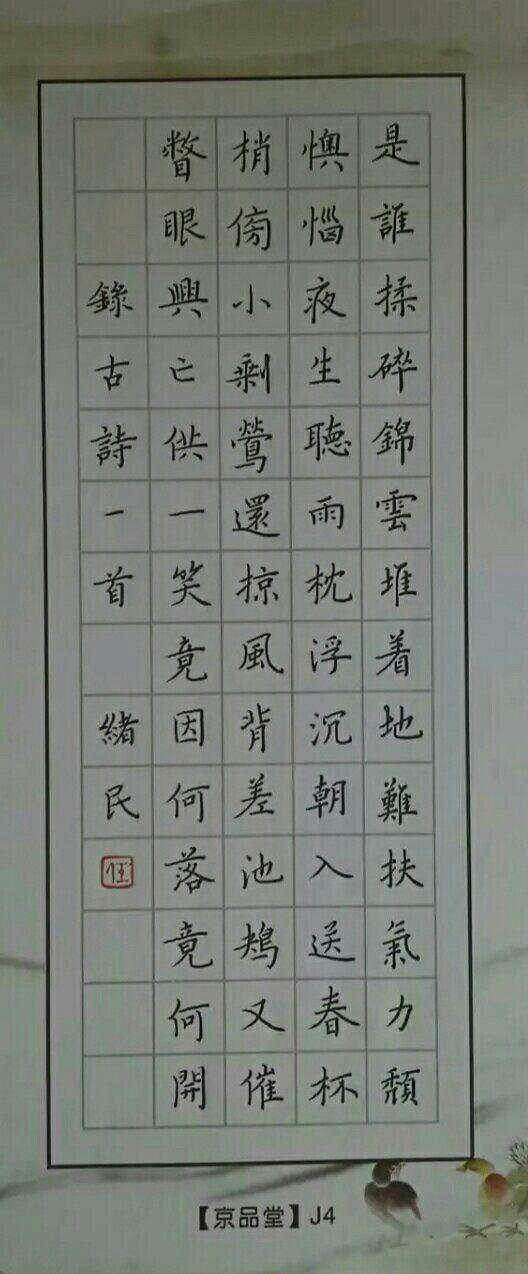 是誰揉碎錦雲堆着地難扶氣力頹
懊惱夜生聽雨枕浮沉朝入送春杯
梢傍小剩鶯還掠風背差池鴂又催
瞥眼興亡供一笑竟因何落竟何開
錄古詩一首 緒民
伍
【京品堂】J4